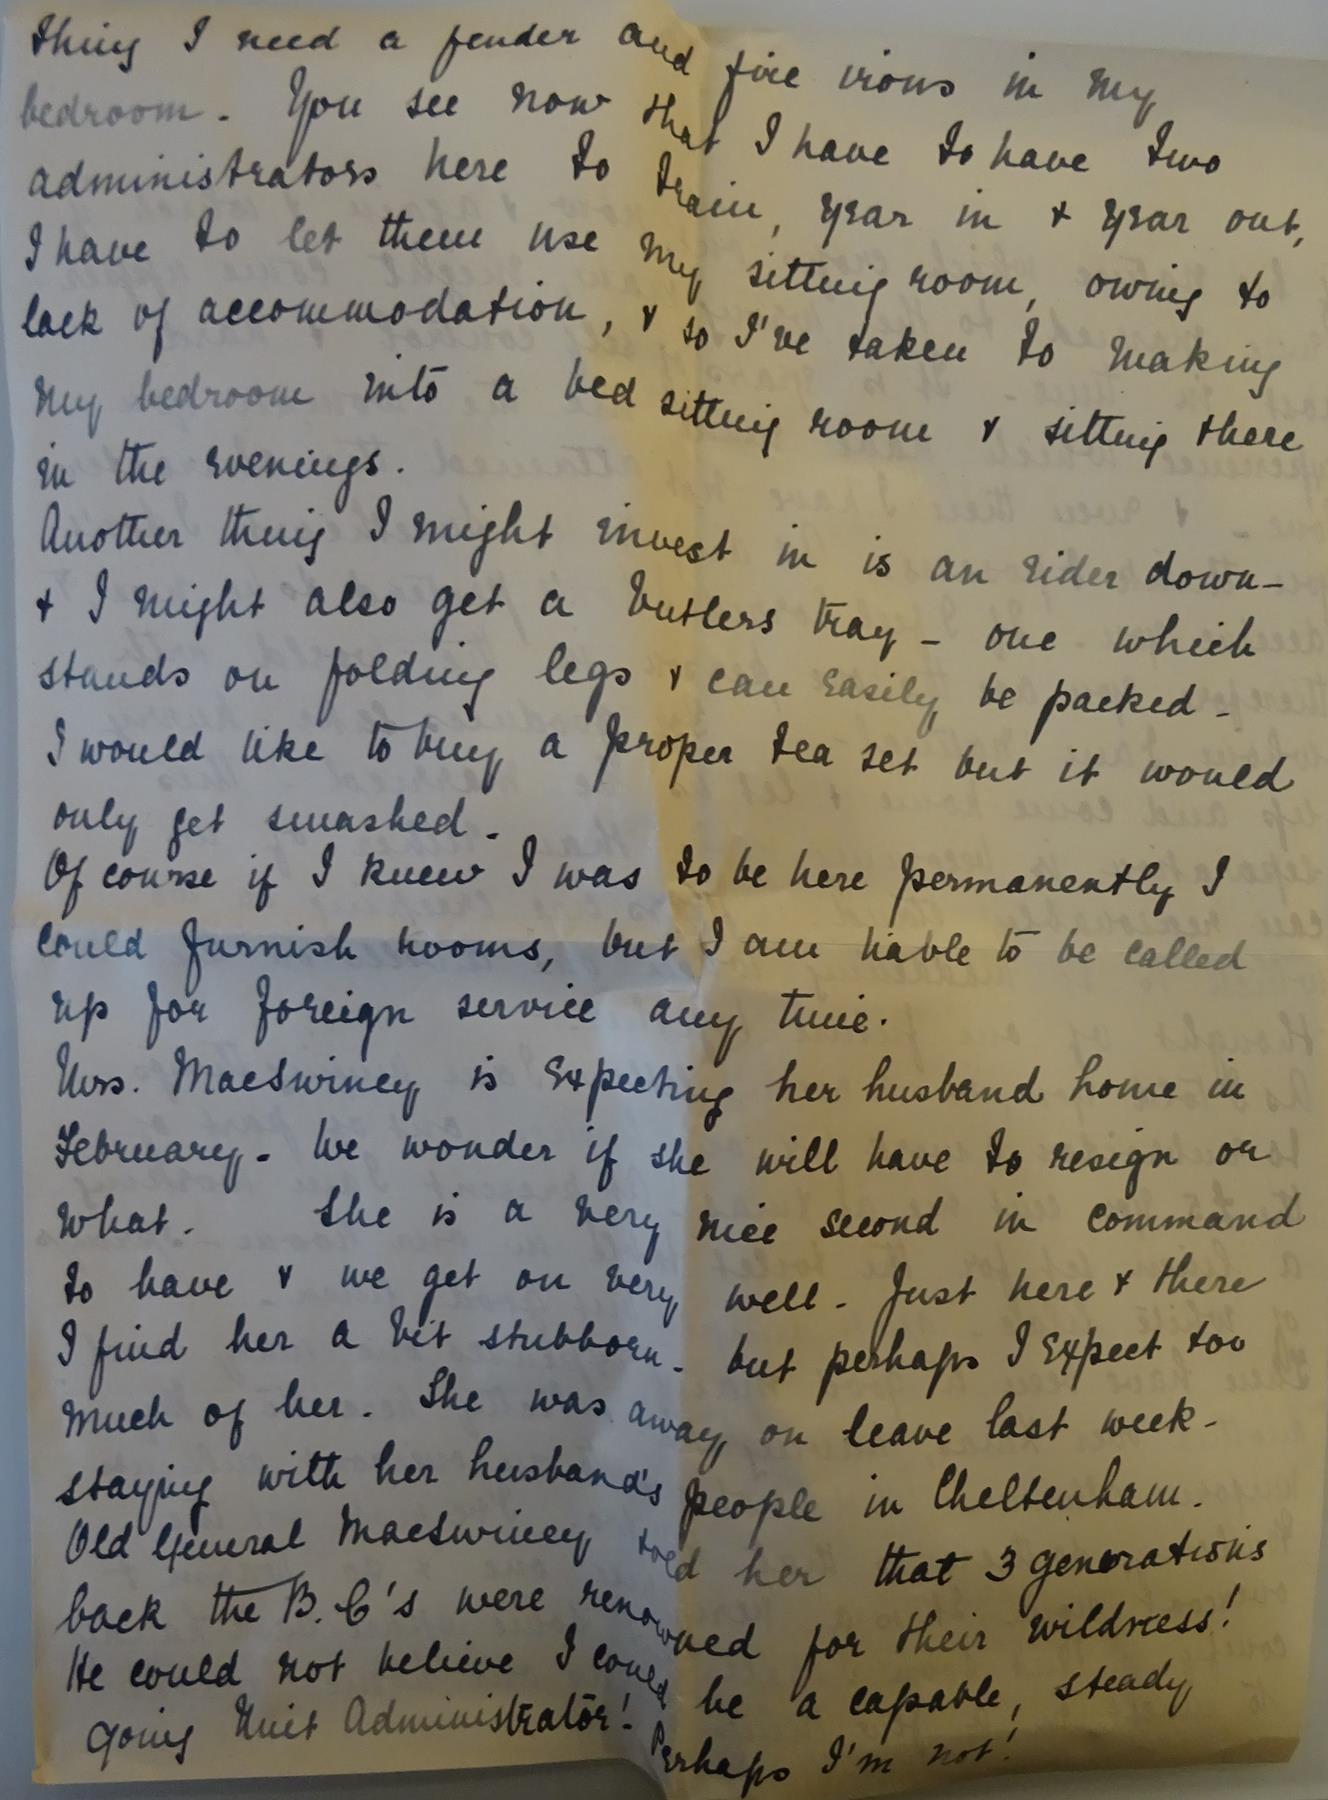 thing I need a fender and fire irons in my
bedroom. You see now that I have to have two
administrators here to train, year in & year out,
I have to let them use my sitting room, owing to
lack of accommodation, & so I've taken to making
my bedroom into a bed sitting room & sitting there
in the evenings.
Another thing I might invest in is an eider down-
& I might also get a butlers tray - one which
stands on folding legs & can easily be packed -
I would like to buy a proper tea set but it would
only get smashed -
Of course if I knew I was to be here permanently I
could furnish rooms, but I am liable to be called
up for foreign service any time.
Mrs. MacSwiney is expecting her husband home in
February - We wonder if she will have to resign or
what. She is a very nice second in command
to have & we get on very well - Just here & there
I find her a bit stubborn - but perhaps I expect too
much of her. She was away on leave last week -
staying with her husband's people in Cheltenham.
Old General MacSwiney told her that 3 generations
back the B.C's were renowned for their wildness!
He could not believe I could be a capable, steady
going Unit Administrator! Perhaps I'm not!